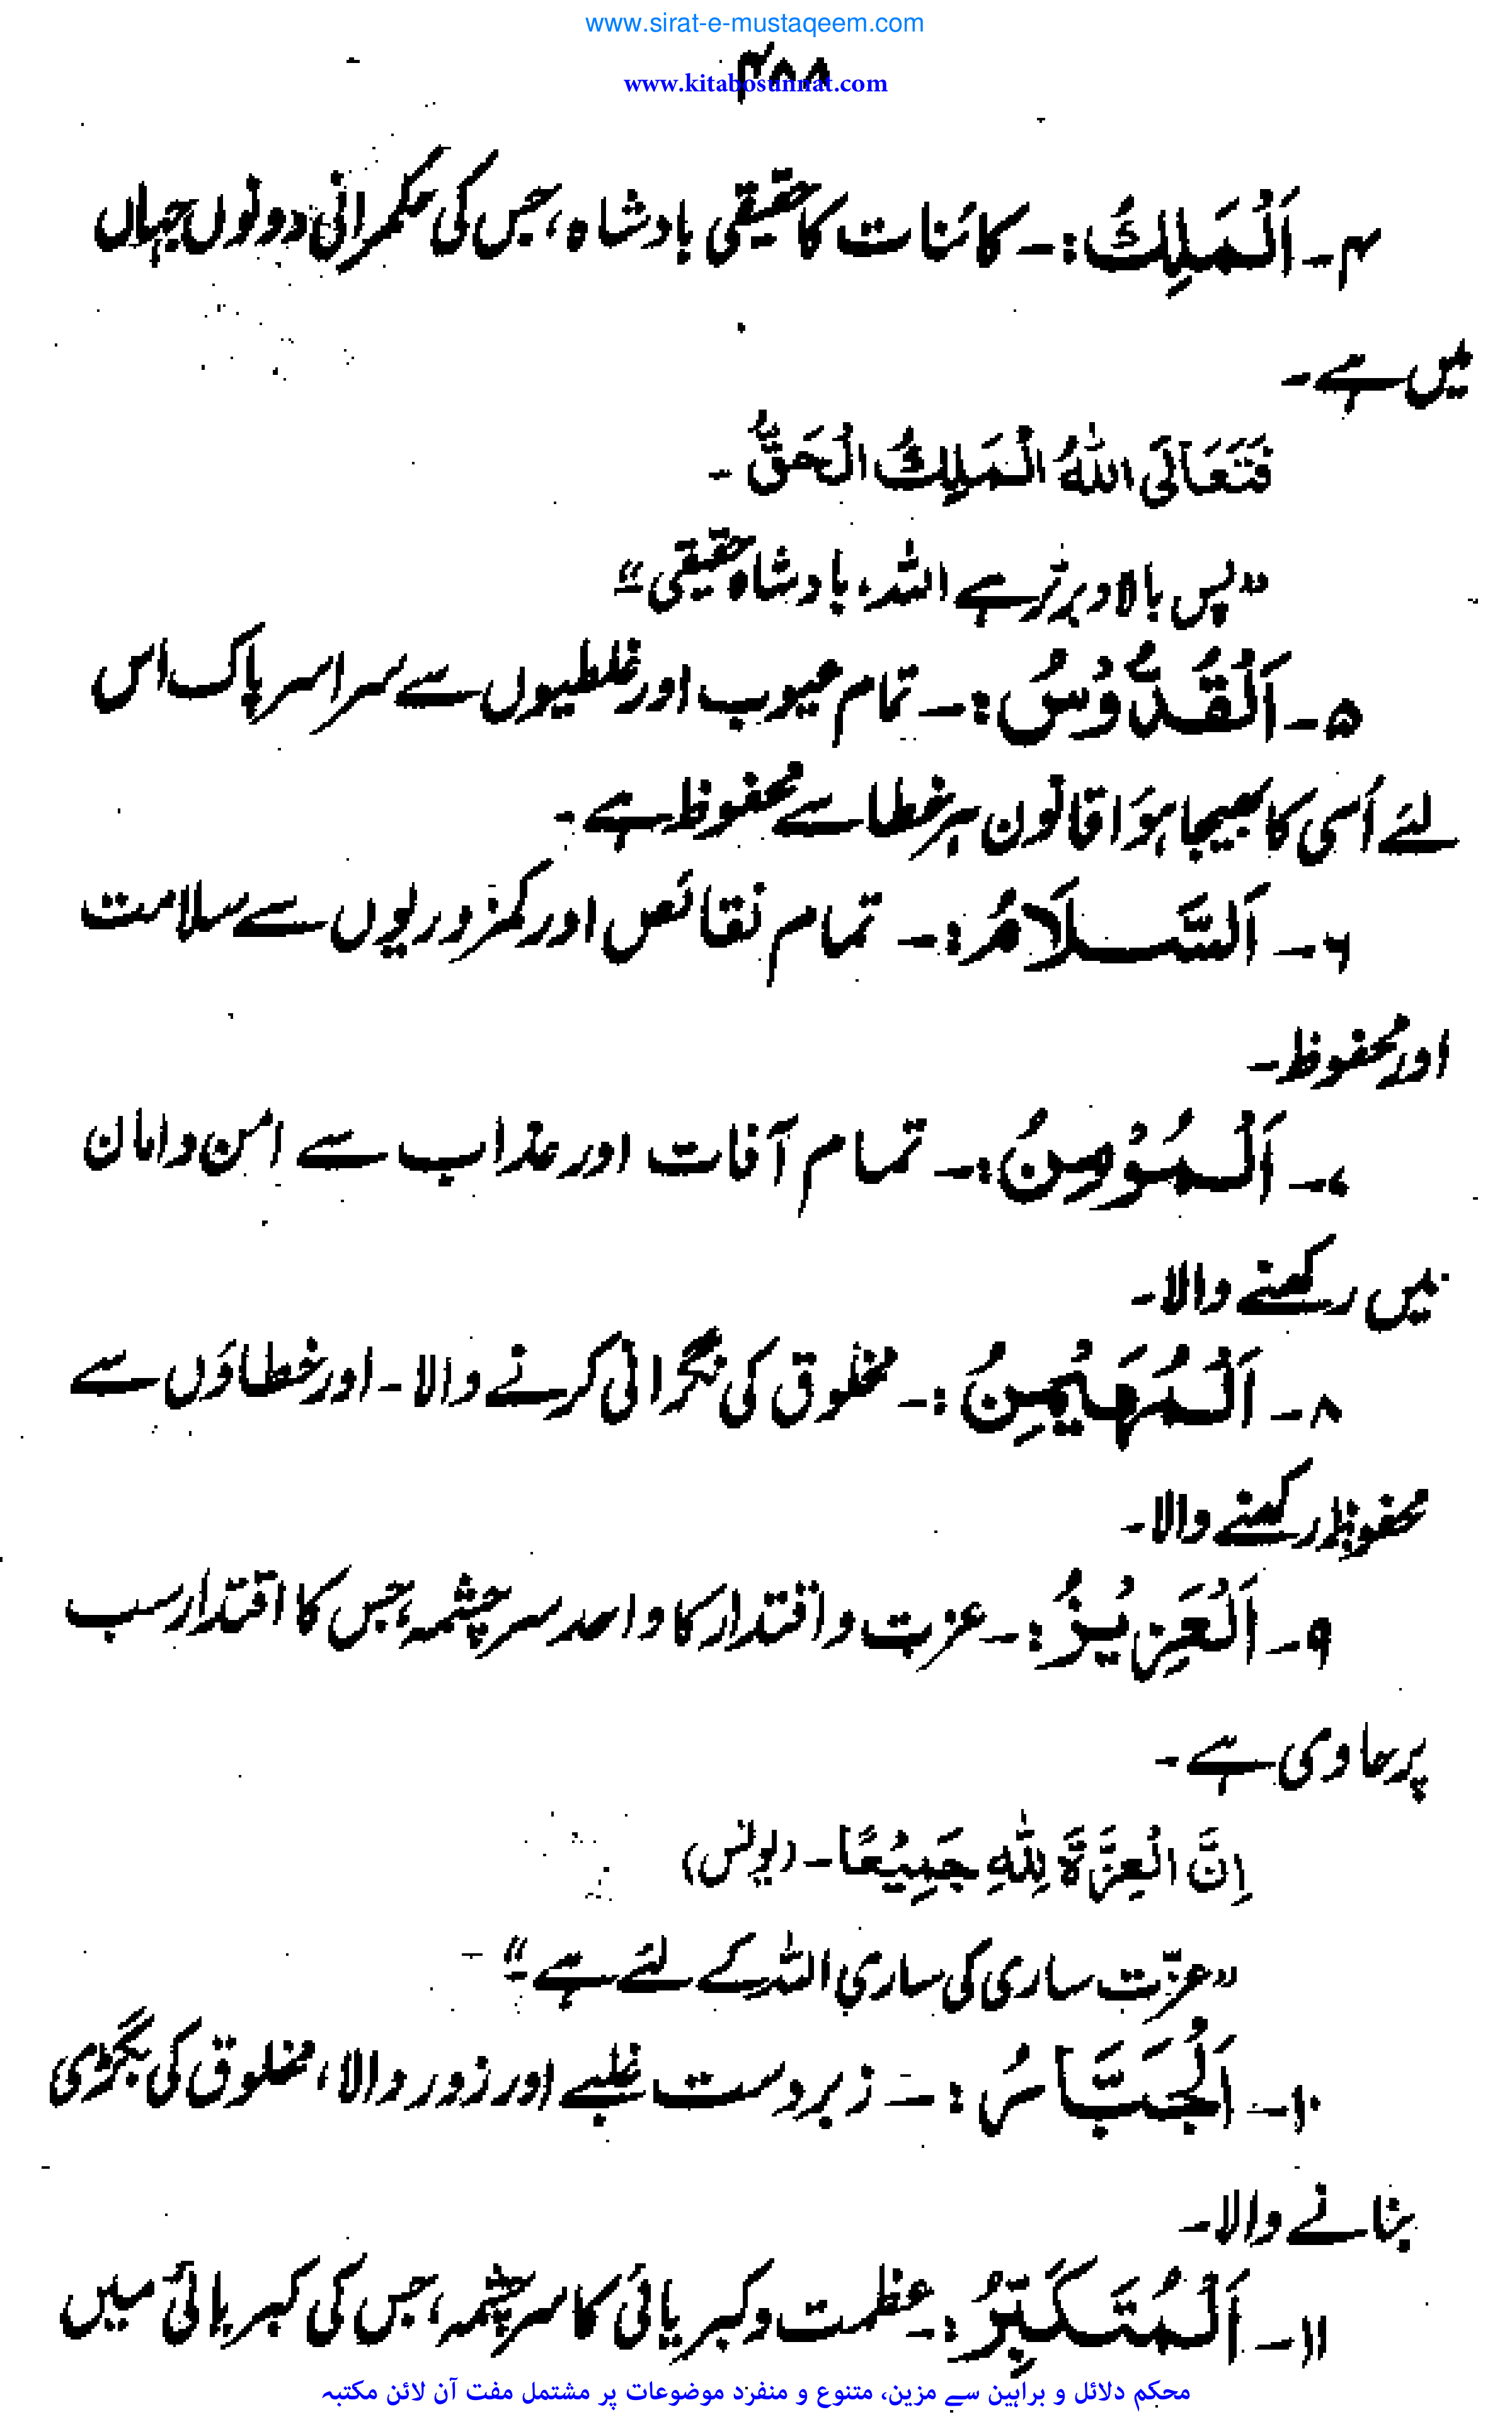 www.sirat-e-mustaqeem.com
۴۸۸
www.kitabosunnat.com
۴۔ اَلْمَلِكُ:۔ کائنات کا حقیقی بادشاہ، جس کی حکمرانی دونوں جہاں
میں ہے۔
فَتَعَالَى اللّٰهُ الْمَلِكُ الْحَقُّ۔
”پس بالا و برتر ہے اللہ، بادشاہ حقیقی“
۵۔ اَلْقُدُّوْسُ:۔ تمام عیوب اور غلطیوں سے سراسر پاک اس
لئے اُسی کا بھیجا ہوَا قانون ہر خطا سے محفوظ ہے۔
۶۔ اَلسَّلَامُ:۔ تمام نقائص اور کمزوریوں سے سلامت
اور محفوظ۔
۷۔ اَلْمُؤْمِنُ:۔ تمام آفات اور عذاب سے امن و امان
میں رکھنے والا۔
۸۔ اَلْمُهَيْمِنُ:۔ مخلوق کی نگرانی کرنے والا۔ اور خطاؤں سے
محفوظ رکھنے والا۔
۹۔ اَلْعَزِيْزُ:۔ عزت و اقتدار کا واحد سرچشمہ، جس کا اقتدار سب
پر حاوی ہے۔
اِنَّ الْعِزَّةَ لِلّٰهِ جَمِيْعًا۔ (یونس)
”عزّت ساری کی ساری اللہ کے لئے ہے۔“
۱۰۔ اَلْجَبَّارُ:۔ زبردست غلبے اور زور والا، مخلوق کی بگڑی
بنانے والا۔
۱۱۔ اَلْمُتَكَبِّرُ:۔ عظمت و کبریائی کا سرچشمہ، جس کی کبریائی میں
محکم دلائل و براہین سے مزین، متنوع و منفرد موضوعات پر مشتمل مفت آن لائن مکتبہ